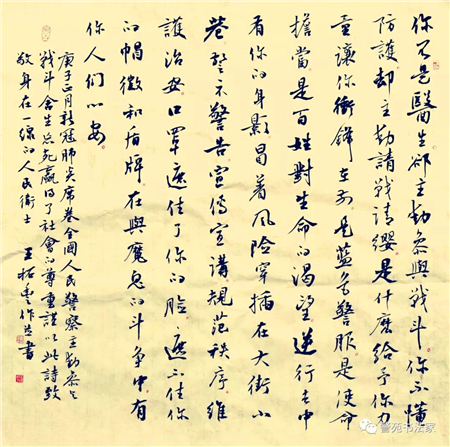 你不是醫生卻主動參與戰斗你不懂
防護却主動請戰請纓是什麽給予你力
量讓你衝鋒在前是藍色警服是使命
擔當是百姓對生命的渴望逆行去中
有你的身影冒着風險穿插在大街小
巷警示警告宣傳宣講規范秩序維
護治安口罩遮住了你的臉遮不住你
的帽徽和盾牌在與魔鬼的斗争中有
你人們心安
庚子正月新冠肺炎席卷全國人民警察主動參与
戰斗舍生忘死贏得了社會的尊重謹以此詩致
敬身在一線的人民衛士 王拓 作并書
警苑书法家